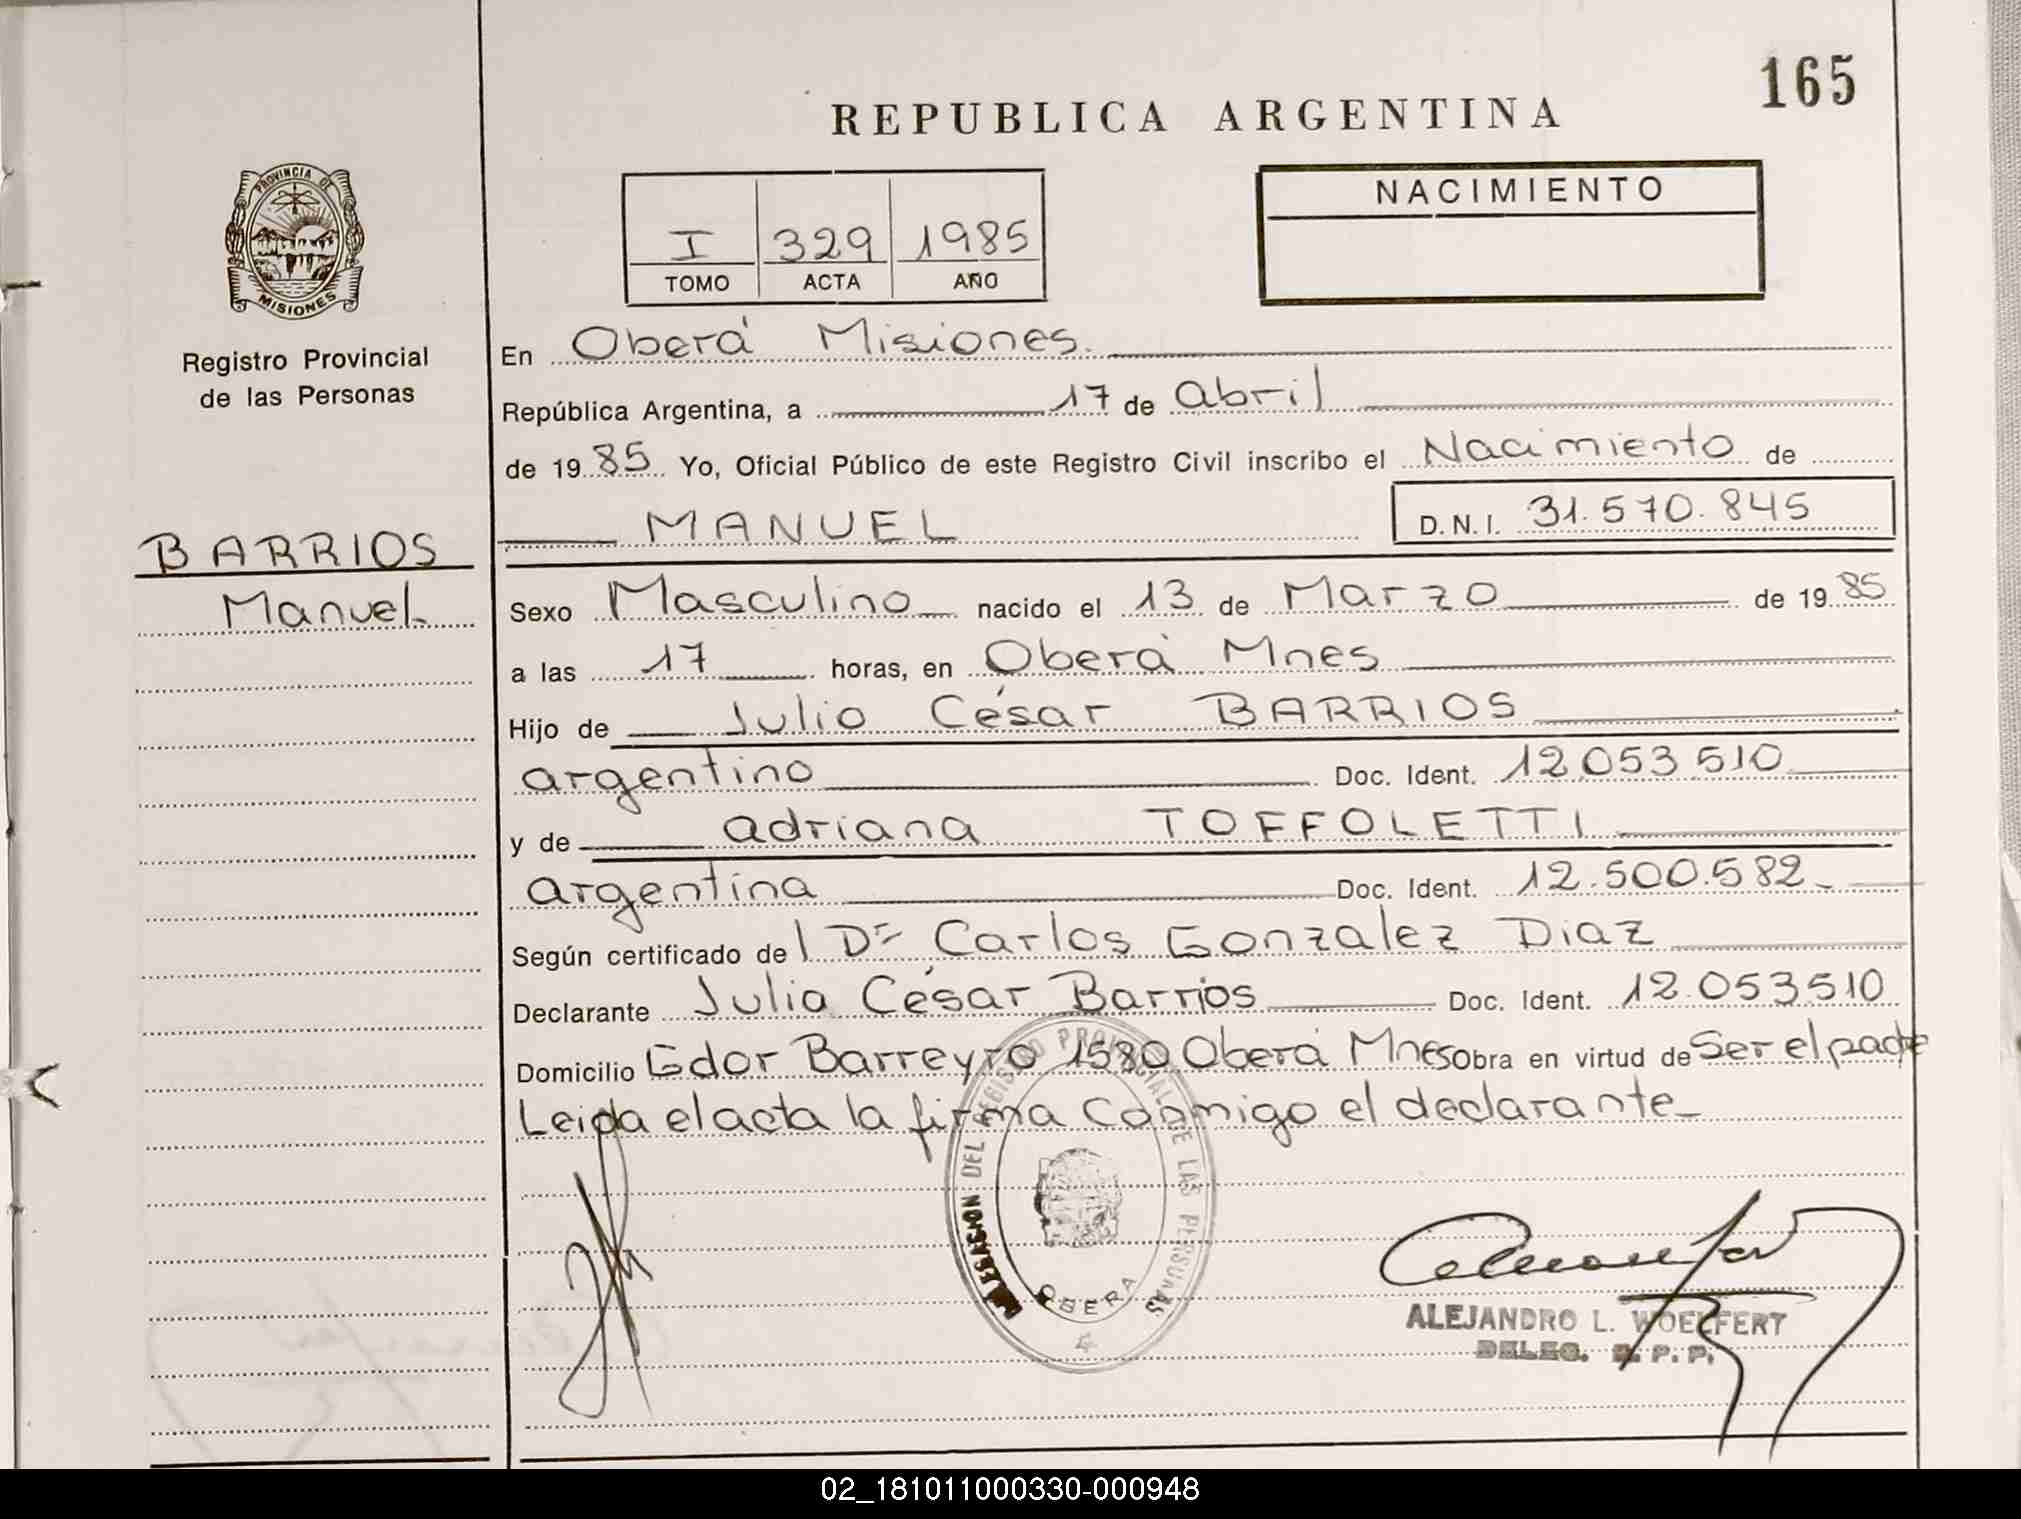 165
REPUBLICA ARGENTINA
PROVINCIA DE
MISIONES
Registro Provincial
de las Personas
I 329 1985
TOMO ACTA AÑO
NACIMIENTO
En Oberá Misiones.
República Argentina, a 17 de abril
de 19 85 Yo, Oficial Público de este Registro Civil inscribo el Nacimiento de
MANUEL
D.N.I. 31.570.845
BARRIOS
Manuel
Sexo Masculino nacido el 13 de Marzo de 19 85
a las 17 horas, en Oberá Mnes
Hijo de Julio César BARRIOS
argentino Doc. Ident. 12.053.510
y de adriana TOFFOLETTI
argentina Doc. Ident. 12.500.582
Según certificado de l Dr Carlos Gonzalez Diaz
Declarante Julio César Barrios Doc. Ident. 12.053.510
Domicilio Gdor Barreyro 1580 Oberá Mnes Obra en virtud de Ser el padre
Leida el acta la firma conmigo el declarante
DELEGACION DEL REGISTRO PROVINCIAL DE LAS PERSONAS
OBERA
ALEJANDRO L. WOELFERT
DELEG. R. P. P.
02_181011000330-000948